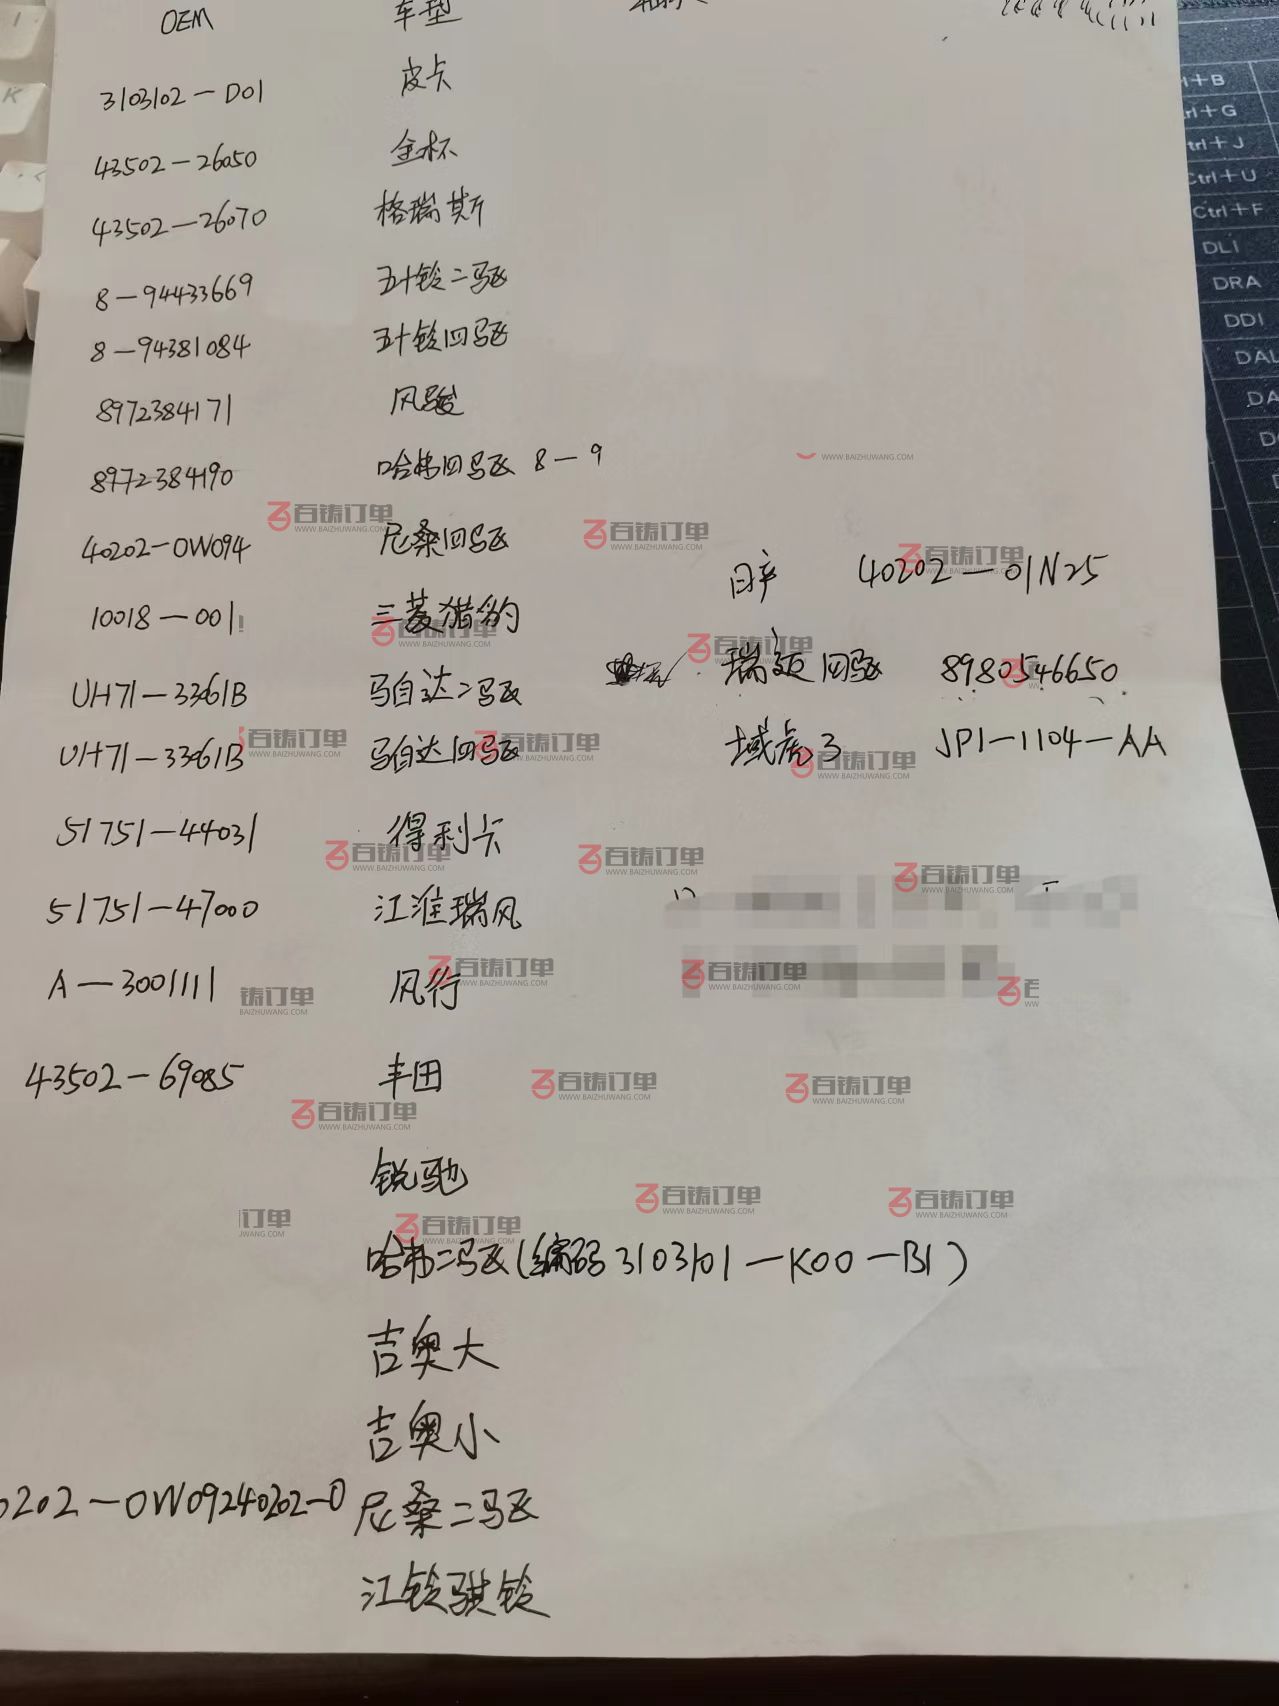 OEM 车型
3103102-D01 皮卡
43502-26050 金杯
43502-26070 格瑞斯
8-94433669 五十铃二驱
8-94381084 五十铃四驱
8972384171 风骏
8972384190 哈弗四驱 8-9
40202-0W094 尼桑四驱 日产 40202-01N25
10018-001 三菱猎豹
瑞迈四驱 8980546650
UH71-3361B 马自达二驱
UH71-3361B 马自达四驱 域虎3 JP1-1104-AA
51751-44031 得利卡
51751-47000 江淮瑞风
A-3001111 风行
43502-69085 丰田
锐驰
哈弗二驱(编码3103101-K00-B1)
吉奥大
吉奥小
0202-0W09240202-0 尼桑二驱
江铃骐铃
百铸订单
WWW.BAIZHUWANG.COM
K
Ctrl+J
Ctrl+U
Ctrl+F
DLI
DRA
DDI